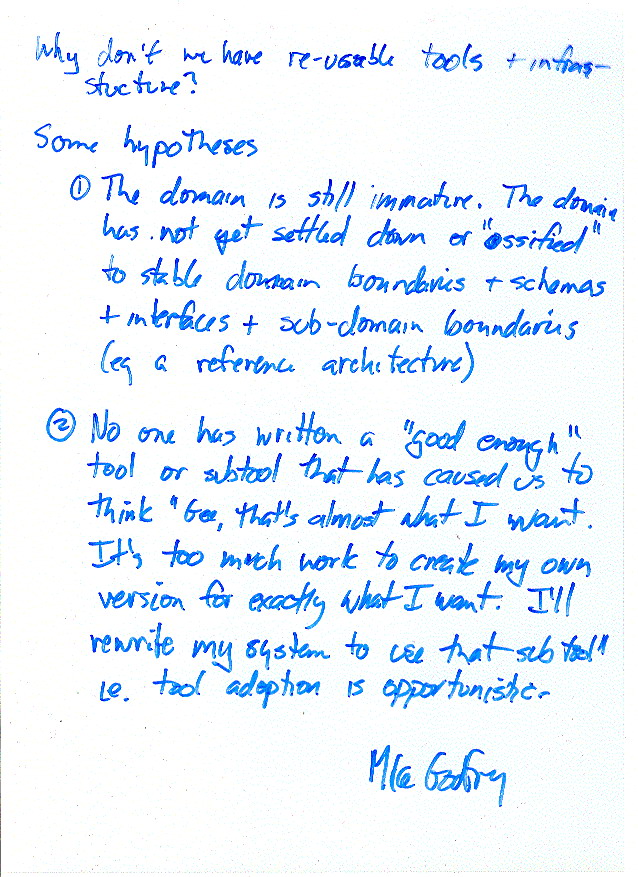 Why don't we have re-usable tools + infras-
structure?
Some hypotheses
① The domain is still immature. The domain
has not yet settled down or "ossified"
to stable domain boundaries + schemas
+ interfaces + sub-domain boundaries
(eg a reference architecture)
② No one has written a "good enough"
tool or subtool that has caused us to
think "Gee, that's almost what I want.
It's too much work to create my own
version for exactly what I want. I'll
rewrite my system to use that subtool"
ie. tool adoption is opportunistic.
Mike Godfrey